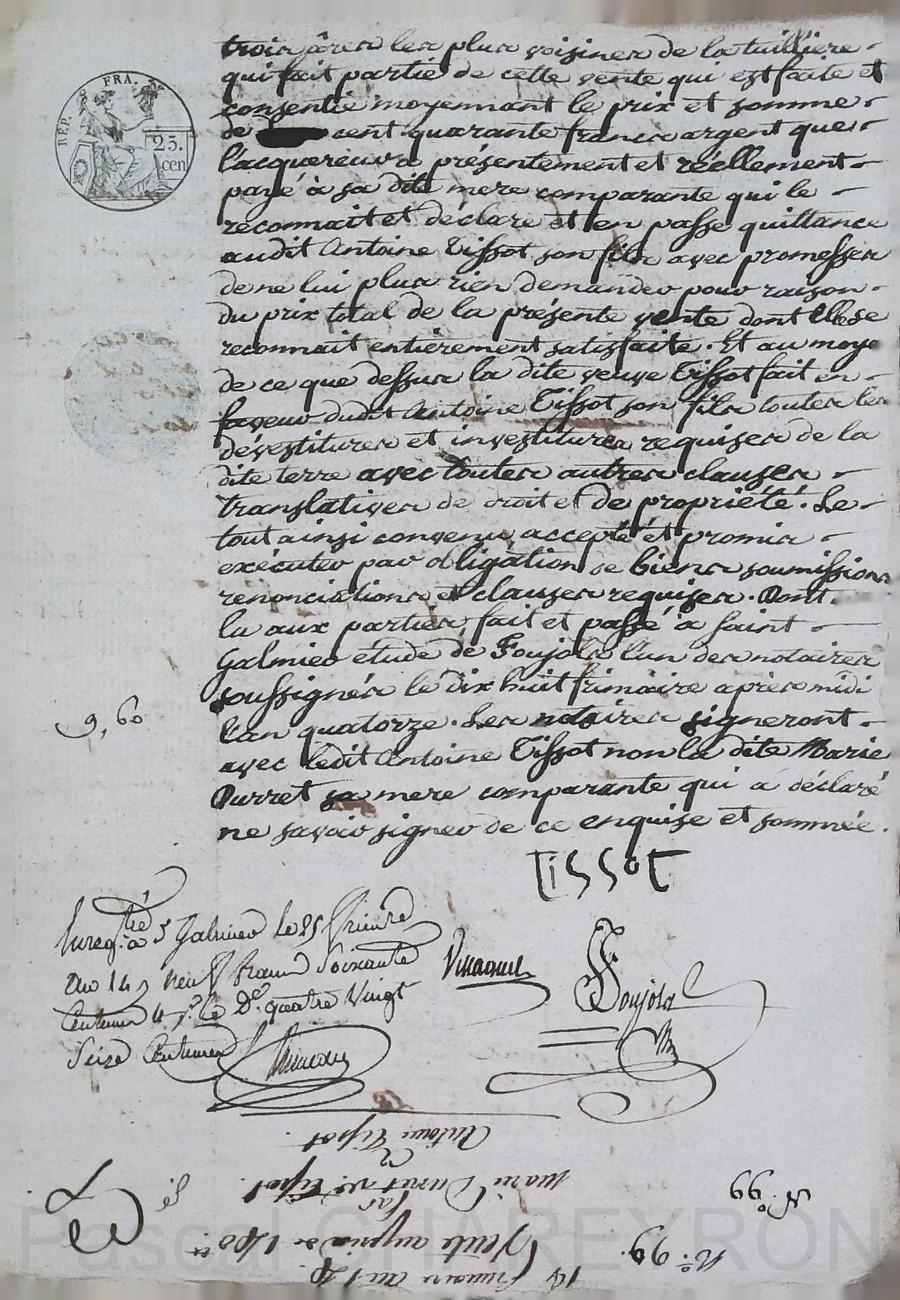 RÉP. FRA.
25.
cen
trois ârea les plus voisines de la tuilliere
qui fait partie de cette vente qui est faite et
consentie moyennant le prix et somme
de cent quarante francs argent que
l'acquereur a présentement et réellement
payé à sa dite mere comparante qui le
reconnait et déclare et en passe quittance
audit Antoine Tissot son fils avec promesses
de ne lui plus rien demander pour raison
du prix total de la présente vente dont elle se
reconnait entièrement satisfaite. Et au moye
de ce que dessus la dite veuve Tissot fait en
faveur dudit Antoine Tissot son fils toutes les
dévestitures et investitures requises de la
dite terre avec toutes autres clauses
translatives de droit et de propriété. Le
tout ainsi convenu accepté et promis
exécuter par obligation de biens soumissions
renonciations et clauses requises. Dont
lu aux parties, fait et passé à Saint
Galmier étude de Foujols l'un des notaires
soussignés le dix huit frimaire après midi
l'an quatorze. Les notaires signeront
avec ledit Antoine Tissot non la dite Marie
Durret sa mere comparante qui a déclaré
ne savoir signer de ce enquise et sommée.
9,60
Tissot
Enregtré à St Galmier le 25 frimre
an 14 neuf francs soixante
centimes
quatre vingt
seize centimes
Foujols
Antoine Tissot
Marie Durret ve Tissot
par
Vente au prix de 140
18 frimaire an 14
No. 99
No. 99
Pascal CHAREYRON